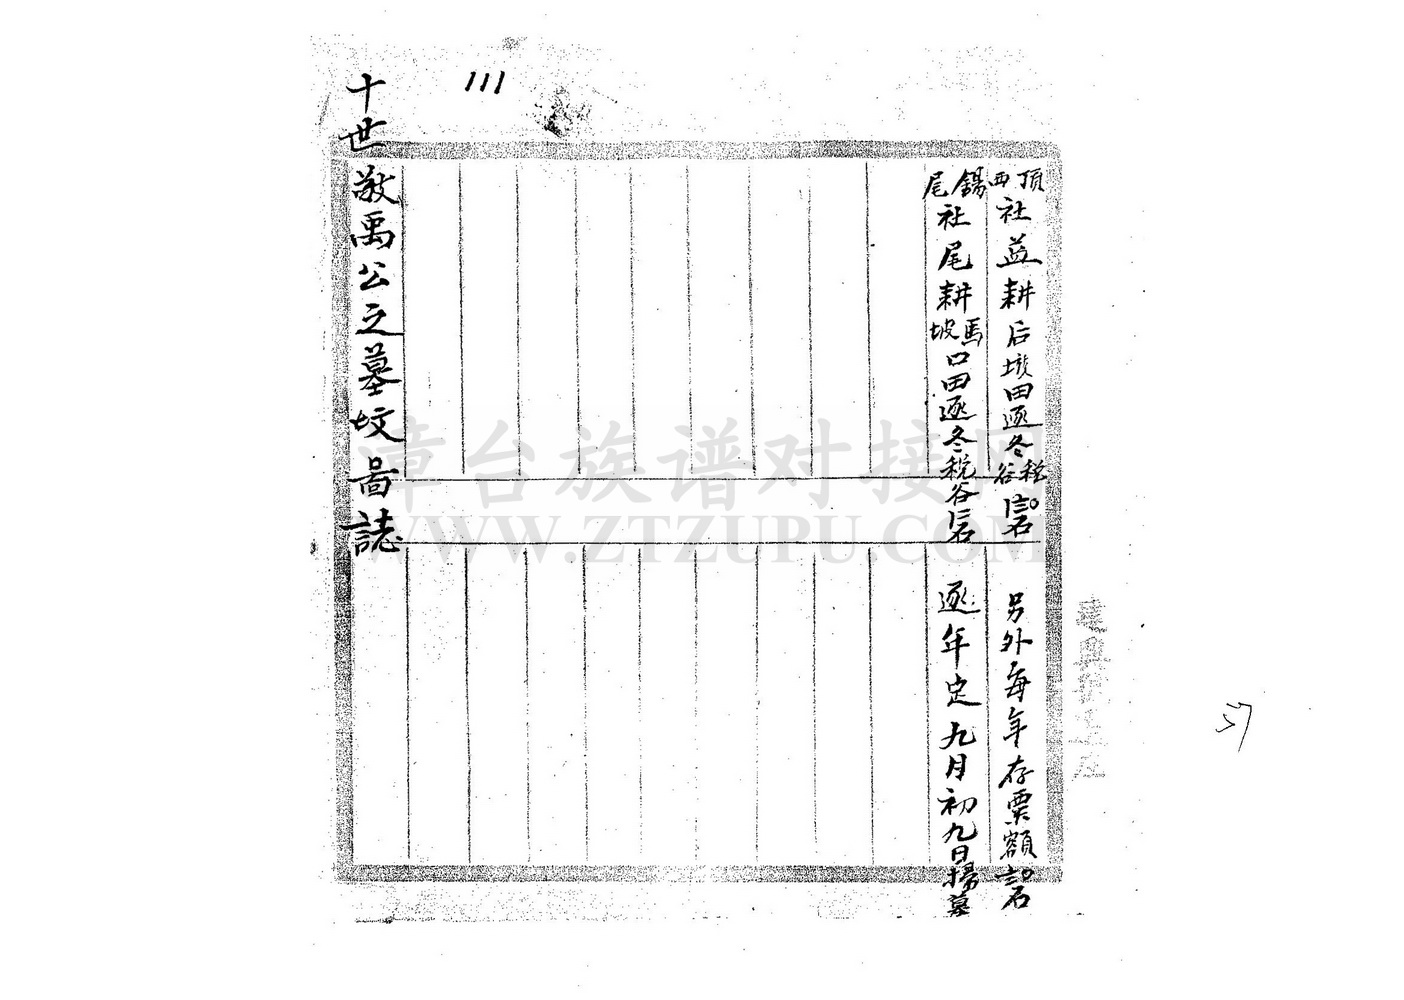 111
頂西社益耕后墘田逐冬税谷石
另外每年存票額石
錫尾社尾耕馬坡口田逐冬税谷石
逐年定九月初九日掃墓
十世敬禹公之墓坟啚誌
漳台族谱对接网
WWW.ZTZUPU.COM
57